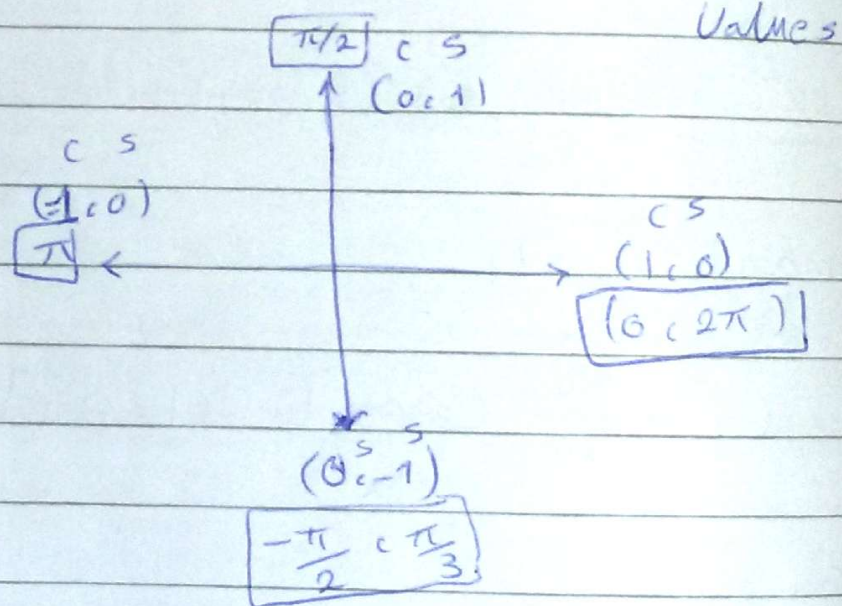 Values
π/2 c s
(0، 1)
c s
(-1، 0)
π
c s
(1، 0)
(0، 2π)
s s
(0، -1)
-π/2 ، π/3